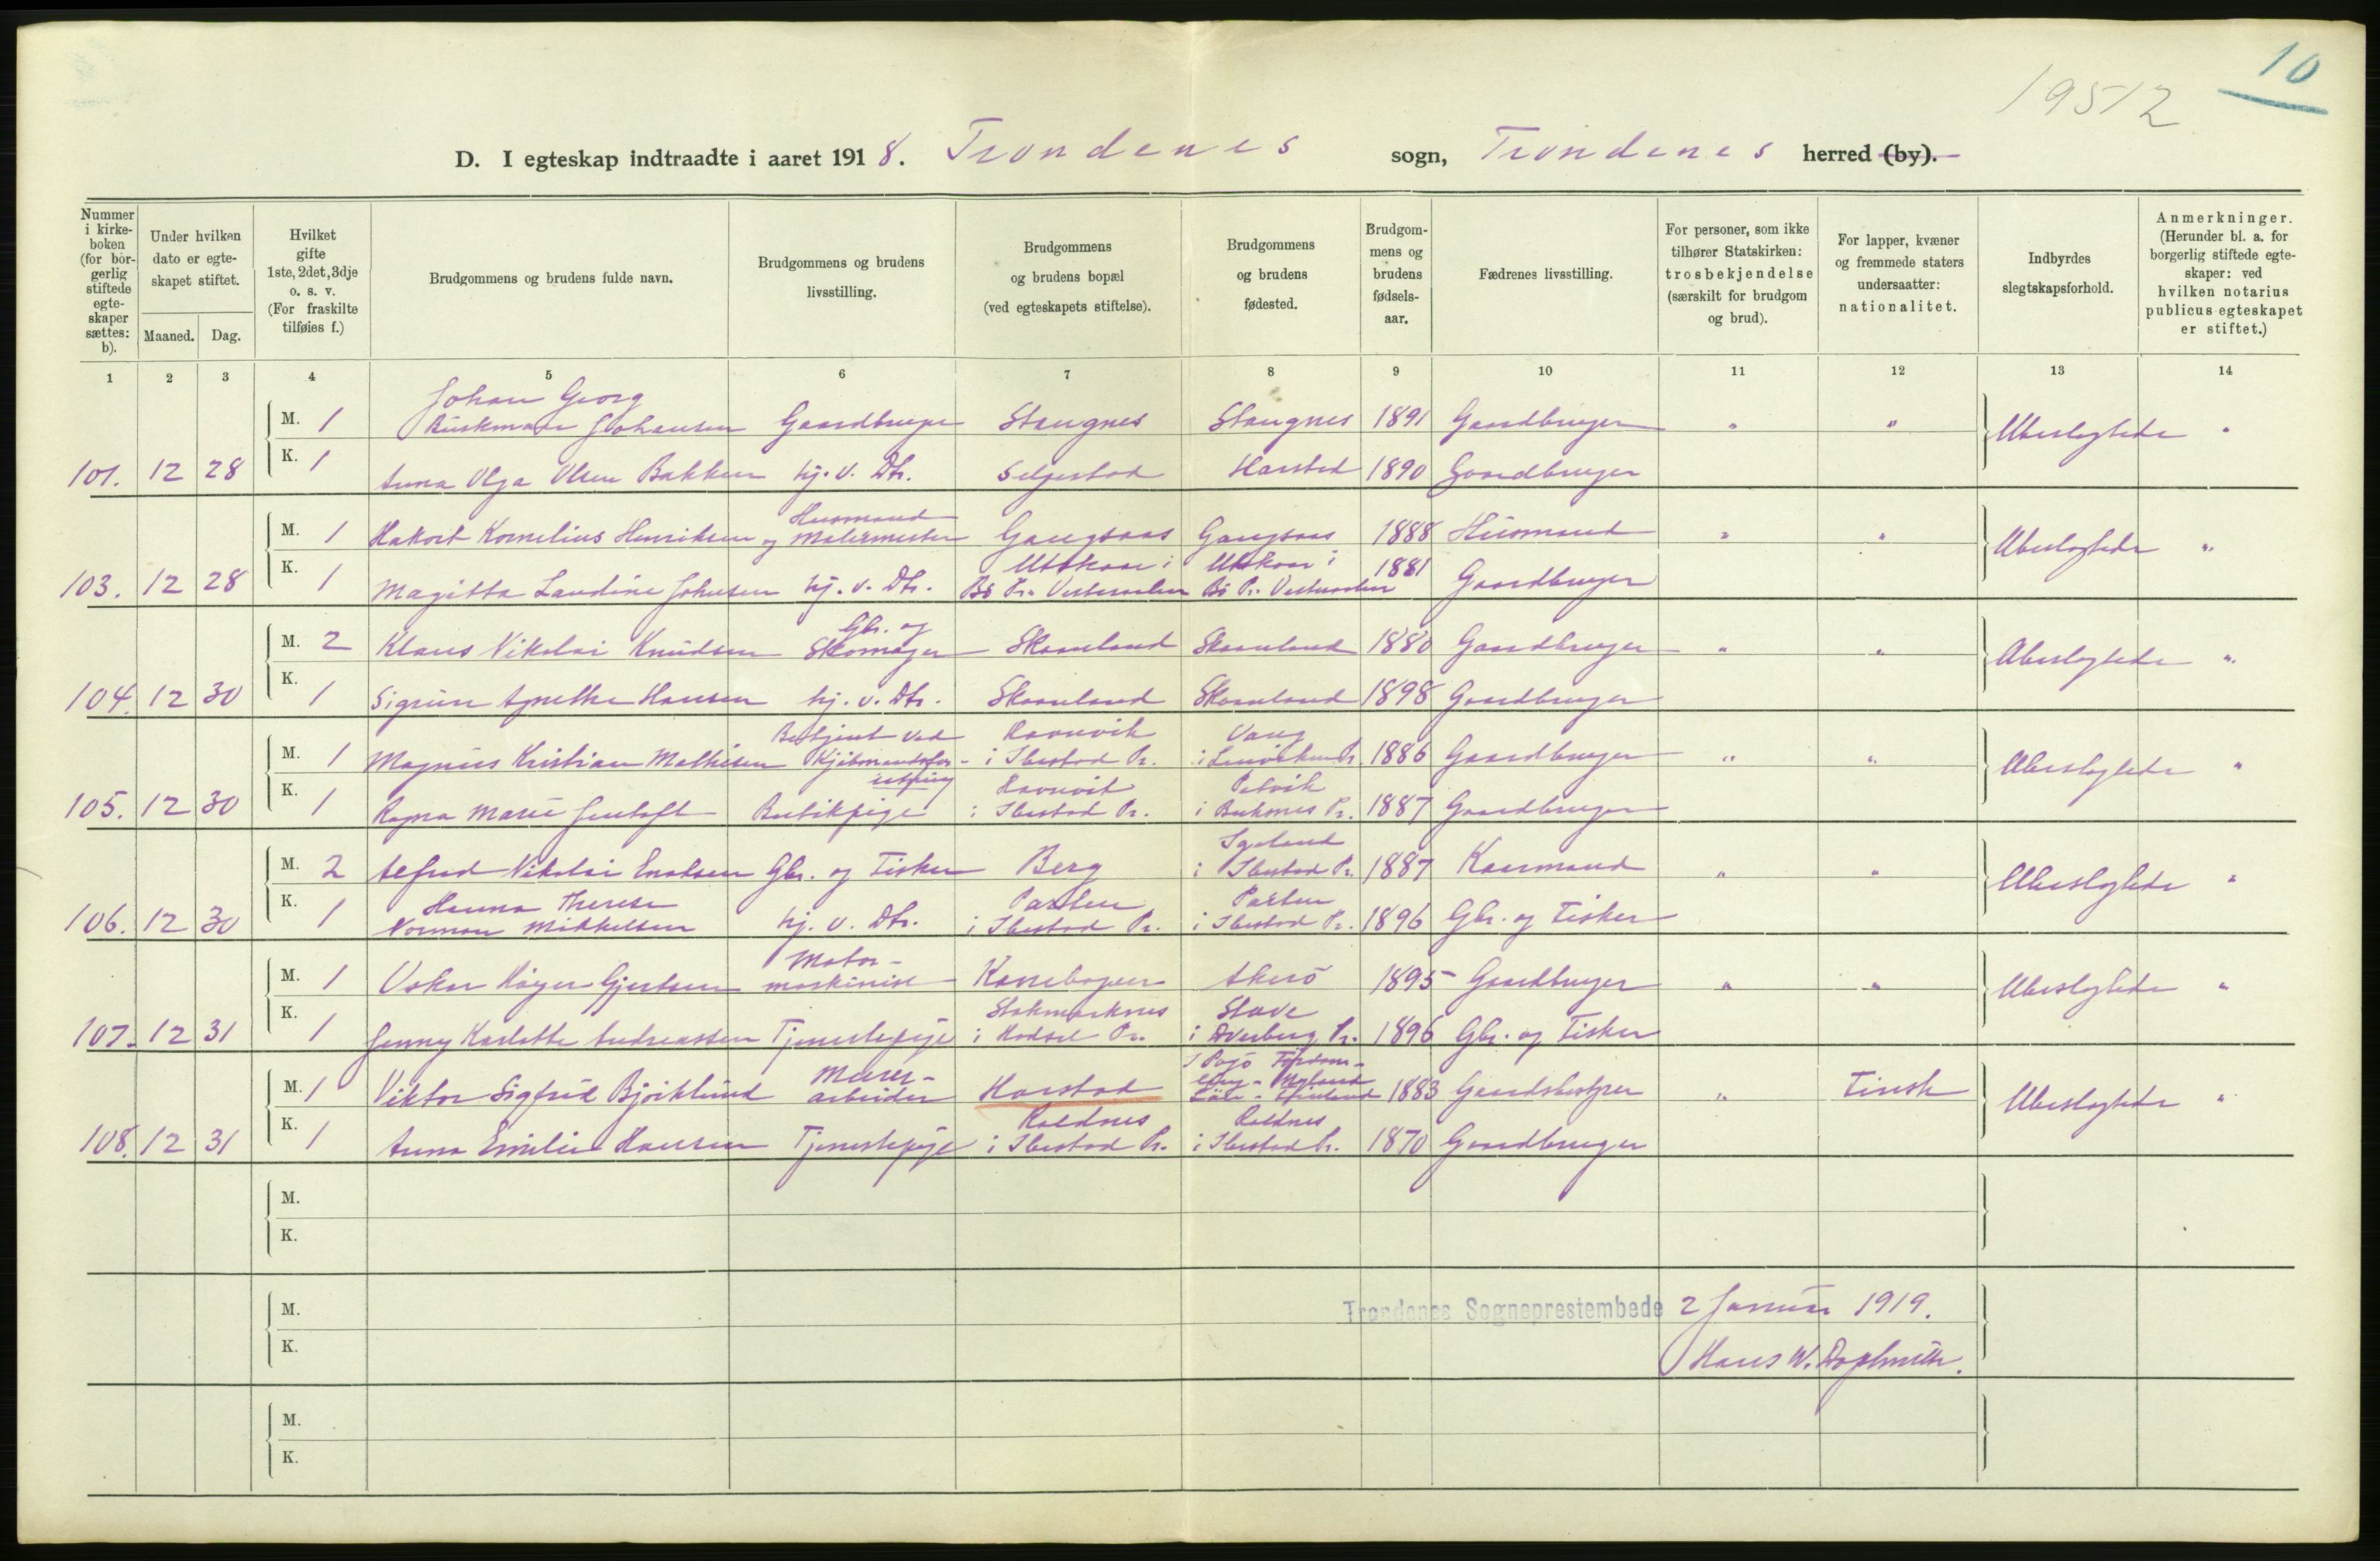 10
19512
D. I egteskap indtraadte i aaret 1918. Trondenes sogn, Trondenes herred (by).
Nummer i kirkeboken (for borgerlig stiftede egteskaper sættes: b).
Under hvilken dato er egteskapet stiftet.
Maaned. Dag.
Hvilket gifte 1ste, 2det, 3dje o. s. v. (For fraskilte tilføies f.)
Brudgommens og brudens fulde navn.
Brudgommens og brudens livsstilling.
Brudgommens og brudens bopæl (ved egteskapets stiftelse).
Brudgommens og brudens fødested.
Brudgommens og brudens fødselsaar.
Fædrenes livsstilling.
For personer, som ikke tilhører Statskirken: trosbekjendelse (særskilt for brudgom og brud).
For lapper, kvæner og fremmede staters undersaatter: nationalitet.
Indbyrdes slegtskapsforhold.
Anmerkninger. (Herunder bl. a. for borgerlig stiftede egteskaper: ved hvilken notarius publicus egteskapet er stiftet.)
1 2 3 4 5 6 7 8 9 10 11 12 13 14
Johan Georg
M. 1 Johansen Gaardbruger Stangnes Stangnes 1891 Gaardbruger " " Ubeslegtede "
101. 12 28 K. 1 Anna Olga Olsen Bakken hj. v. Dtr. Seljestad Harstad 1890 Gaardbruger
Husmand
M. 1 Hakort Kornelius Henriksen og Malermester Gangsaas Gangsaas 1888 Husmand " " Ubeslegtede "
Utskaar i Utskaar i
103. 12 28 K. 1 Magitta Laudine Johnsen hj. v. Dtr. Bö Pr. Vesteraalen Bö Pr. Vesteraalen 1881 Gaardbruger
Gbr. og
M. 2 Klaus Nikolai Knudsen Skomager Skaanland Skaanland 1880 Gaardbruger " " Ubeslegtede "
104. 12 30 K. 1 Sigrun Agnethe Hansen hj. v. Dtr. Skaanland Skaanland 1898 Gaardbruger
Betjent ved Ravnvik Vang
M. 1 Magnus Kristian Mathisen Kjöbmandsfor- i Ibestad Pr. i Lenvikens Pr. 1886 Gaardbruger " " Ubeslegtede "
retning Ravnvik Petvik
105. 12 30 K. 1 Ragna Marie Jentoft Butikpige i Ibestad Pr. i Buksnes Pr. 1887 Gaardbruger
Igeland
M. 2 Alfred Nikolai Enoksen Gbr. og Fisker Berg i Ibestad Pr. 1887 Kaarmand " " Ubeslegtede "
Hanna Therese
106. 12 30 K. 1 Norman Mikkelsen hj. v. Dtr. i Ibestad Pr. i Ibestad Pr. 1896 Gbr. og Fisker
Motor-
M. 1 Oskar Höyer Gjertsen maskinist Kanebogen Akerö 1895 Gaardbruger " " Ubeslegtede "
Stokmarknes Stave
107. 12 31 K. 1 Jenny Karlotte Andreassen Tjenestepige i Hadsel Pr. i Dverberg Pr. 1896 Gbr. og Fisker
Murer-
M. 1 Viktor Sigfrid Björklund arbeider Harstad 1883 Gaardsbestyrer " Finsk Ubeslegtede "
Roldnes Roldnes
108. 12 31 K. 1 Anna Emilie Hansen Tjenestepige i Ibestad Pr. i Ibestad Pr. 1870 Gaardbruger
M.
K.
M.
Trondenes Sogneprestembede 2 Januar 1919.
K.
Hans W.
M.
K.